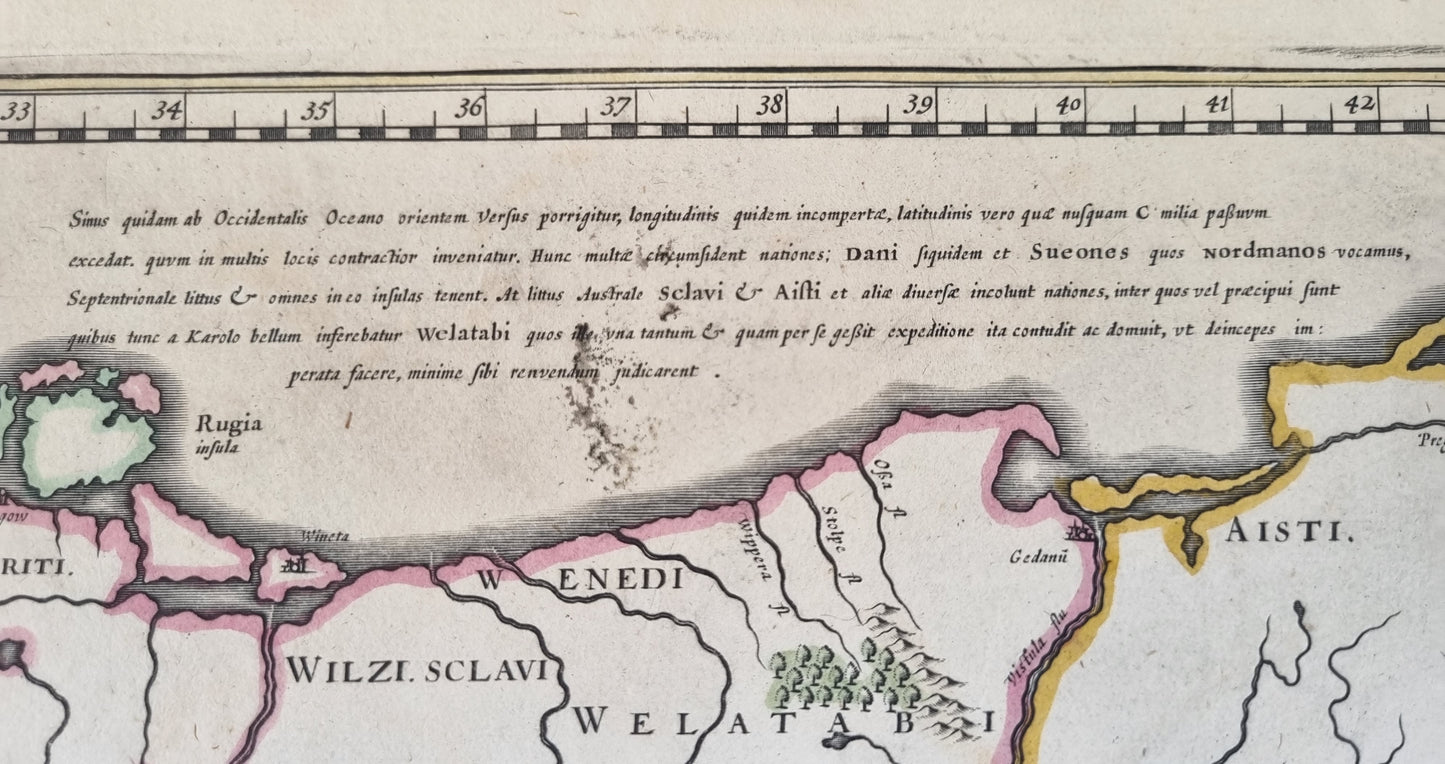 33 34 35 36 37 38 39 40 41 42
Sinus quidam ab Occidentalis Oceano orientem Versus porrigitur, longitudinis quidem incompertæ, latitudinis vero quæ nuſquam C milia paßuvm
excedat. quvm in multis locis contractior inveniatur. Hunc multæ circumſident nationes; Dani ſiquidem et Sueones quos Nordmanos vocamus,
Septentrionale littus & omnes in eo inſulas tenent. At littus Australe Sclavi & Aiſti et aliæ diuerſæ incolunt nationes, inter quos vel præcipui ſunt
quibus tunc a Karolo bellum inferebatur Welatabi quos ille, vna tantum & quam per ſe geßit expeditione ita contudit ac domuit, vt deinceps im:
perata facere, minime ſibi renvendum judicarent .
Rugia
inſula
gow
Wineta
RITI.
W ENEDI
Wippera fl
Stolpe fl
Oßa fl
Gedanũ
AISTI.
Preg
Vistula flu
WILZI. SCLAVI
WELATABI